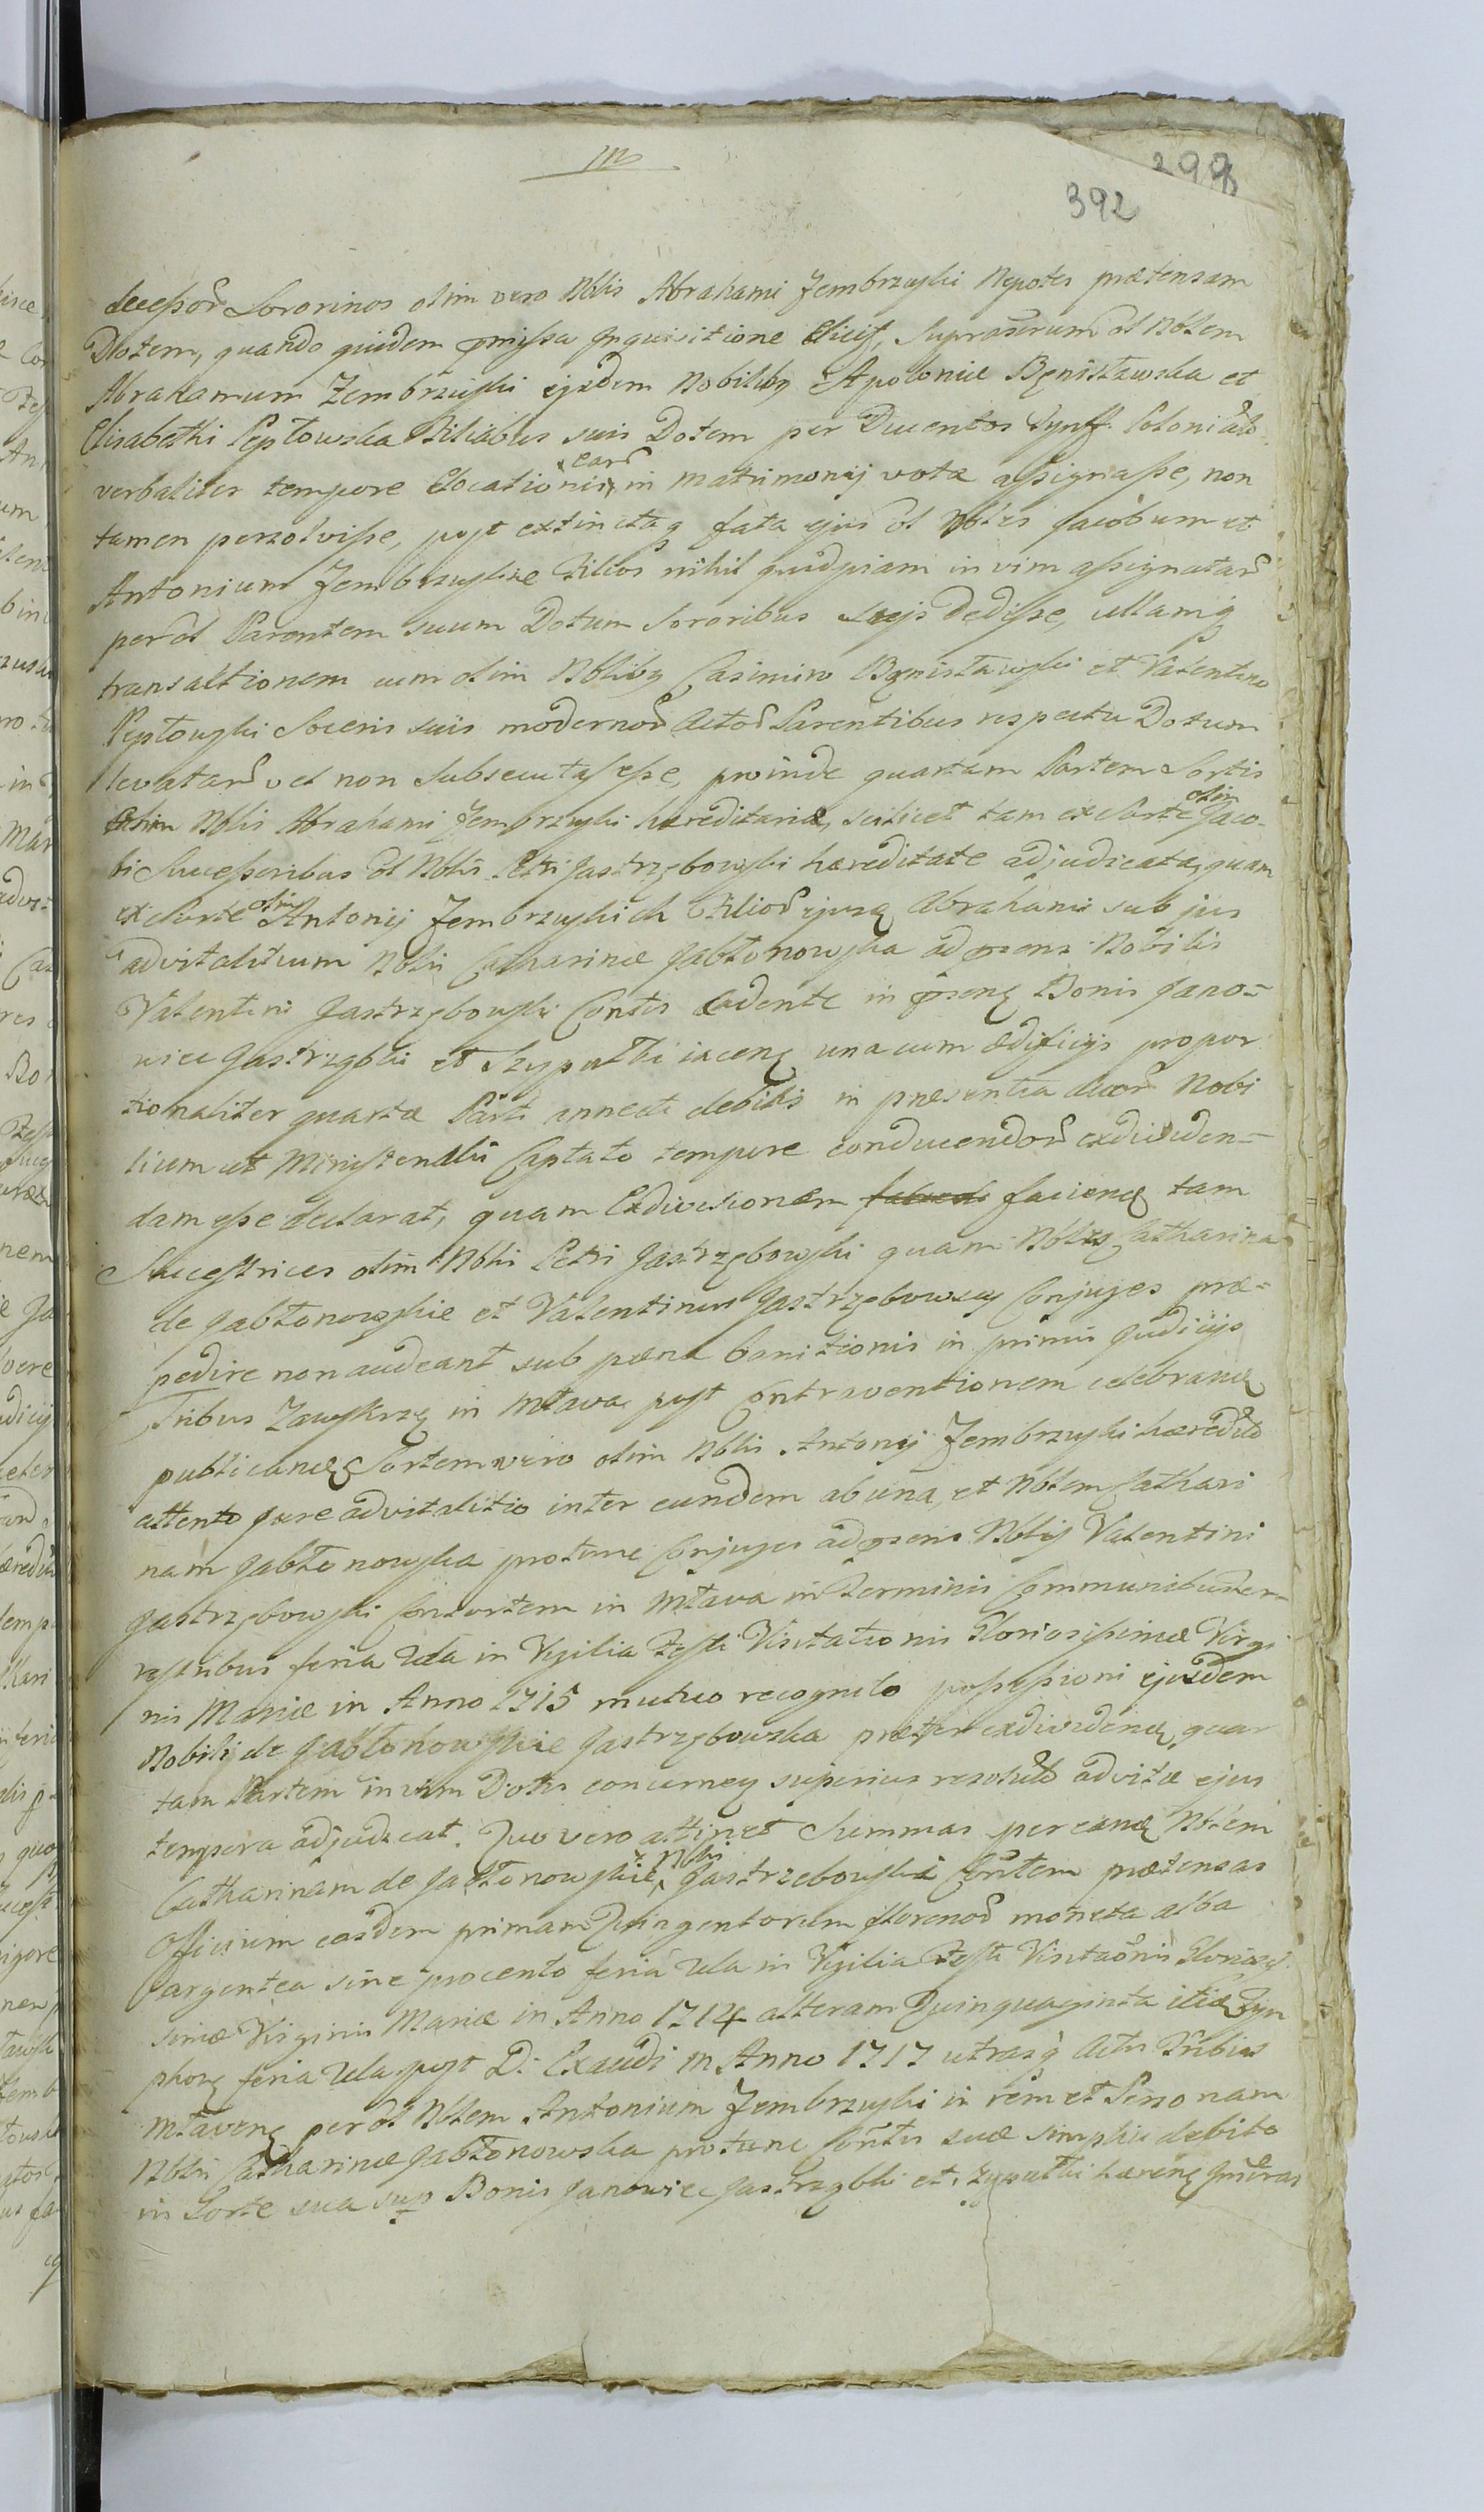 m
298
392
decessor Sororinos olim vero Nblis Abrahami Zembrzuski Nepotes prætensam
Dotem, quando quidem pmissa Inquisitione Elicit, Supra ol Nblem
Abrahamum Zembrzuski ejsdem Nobilibq Apoloniæ Bęnisławska et
Elisabethi Peptowska Filiabus suis Dotem per Ducentos Tynff. Polonical
verbaliter tempore Elocationis ear in matrimonij vota assignasse, non
tamen persolvisse, post extinctaq fata ejus ol Nbles Jacobum et
Antonium Zembrzuskie Filios nihil quidpiam in vim assignatar
per ol Parentem suum Dotum Sororibus suis dedisse, ullamq
transactionem cum olim Nblibq Casimiro Bęnisławski et Valentino
Peptowski Soceris suis modernor Actor Parentibus respectu Dotum
levatar vel non Subsecutas esse, proinde quartam Partem Sortis
olim Nblis Abrahami Zembrzuski hæreditariæ, scilicet tam ex Sorte olim Jaco-
bi Successoribus ol Nblis Petri Jastrzębowski hæreditate adjudicatæ, quam
ex Sorte olim Antonij Zembrzuskich Filior ejusq Abrahami sub jus
advitalitium Nblis Catharinæ Jabłonowska ad præsens Nobilis
Valentini Jastrzębowski Contis cadente in præsenę Bonis Jano=
wiec Jastrząbki et Szypułki iacenę una cum ædificijs propor
tionaliter quartæ Parti annecti debitis in præsentia duor Nobi
lium et Ministerialis Captato tempore conducendor exdividen=
dam esse declarat, quam Exdivisionem faciend tam
Successtrices olim Nblis Petri Jastrzębowski quam Nblis Catharina
de Jabłonowskie et Valentinus Jastrzębowscy Conjuges præ=
pedire non audeant sub pæna banitionis in primis Judicijs
Tribus Zawskrzę in Mława post Contraventionem celebrand
publicand Sortem vero olim Nblis Antonij Zembrzuski hæredit
attento jure advitalitio inter eundem ab una, et Nblem Cathari
nam Jabłonowska protunc Conjuges ad præsens Nblis Valentini
Jastrzębowski Consortem in Mława in Terminis Communibus Ter-
restribus feria 2da in Vigilia Festi Visitationis Gloriosissimæ Virgi
nis Mariæ in Anno 1715 mutuo recognito possessioni ejusdem
Nobilis de Jabłonowskie Jastrzębowska præter exdividend quar
tam Partem in vim Dotis concurrenę superius resolut ad vitæ ejus
tempora adjudicat. Quo vero attinet Summas per eand Nblem
Catharinam de Jabłonowskie Nblis Jastrzebowski Contem prætensas
Officium easdem primam Quingentorum florenor moneta alba
argentea sine procento feria 2da in Vigilia Festi Visitaonis Glorios
simæ Virginis Mariæ in Anno 1714 alteram Quinquaginta itiæ Tyn
phonę feria 2da post D. Exaudi in Anno 1717 utrasq Actis Tribus
Młavenę per ol Nblem Antonium Zembrzuski in rem et Personam
Nblis Catharinæ Jabłonowska protunc Contis suæ simplici debito
in Sorte sua sup Bonis Janowiec Jastrząbki et Szypułki hærenę